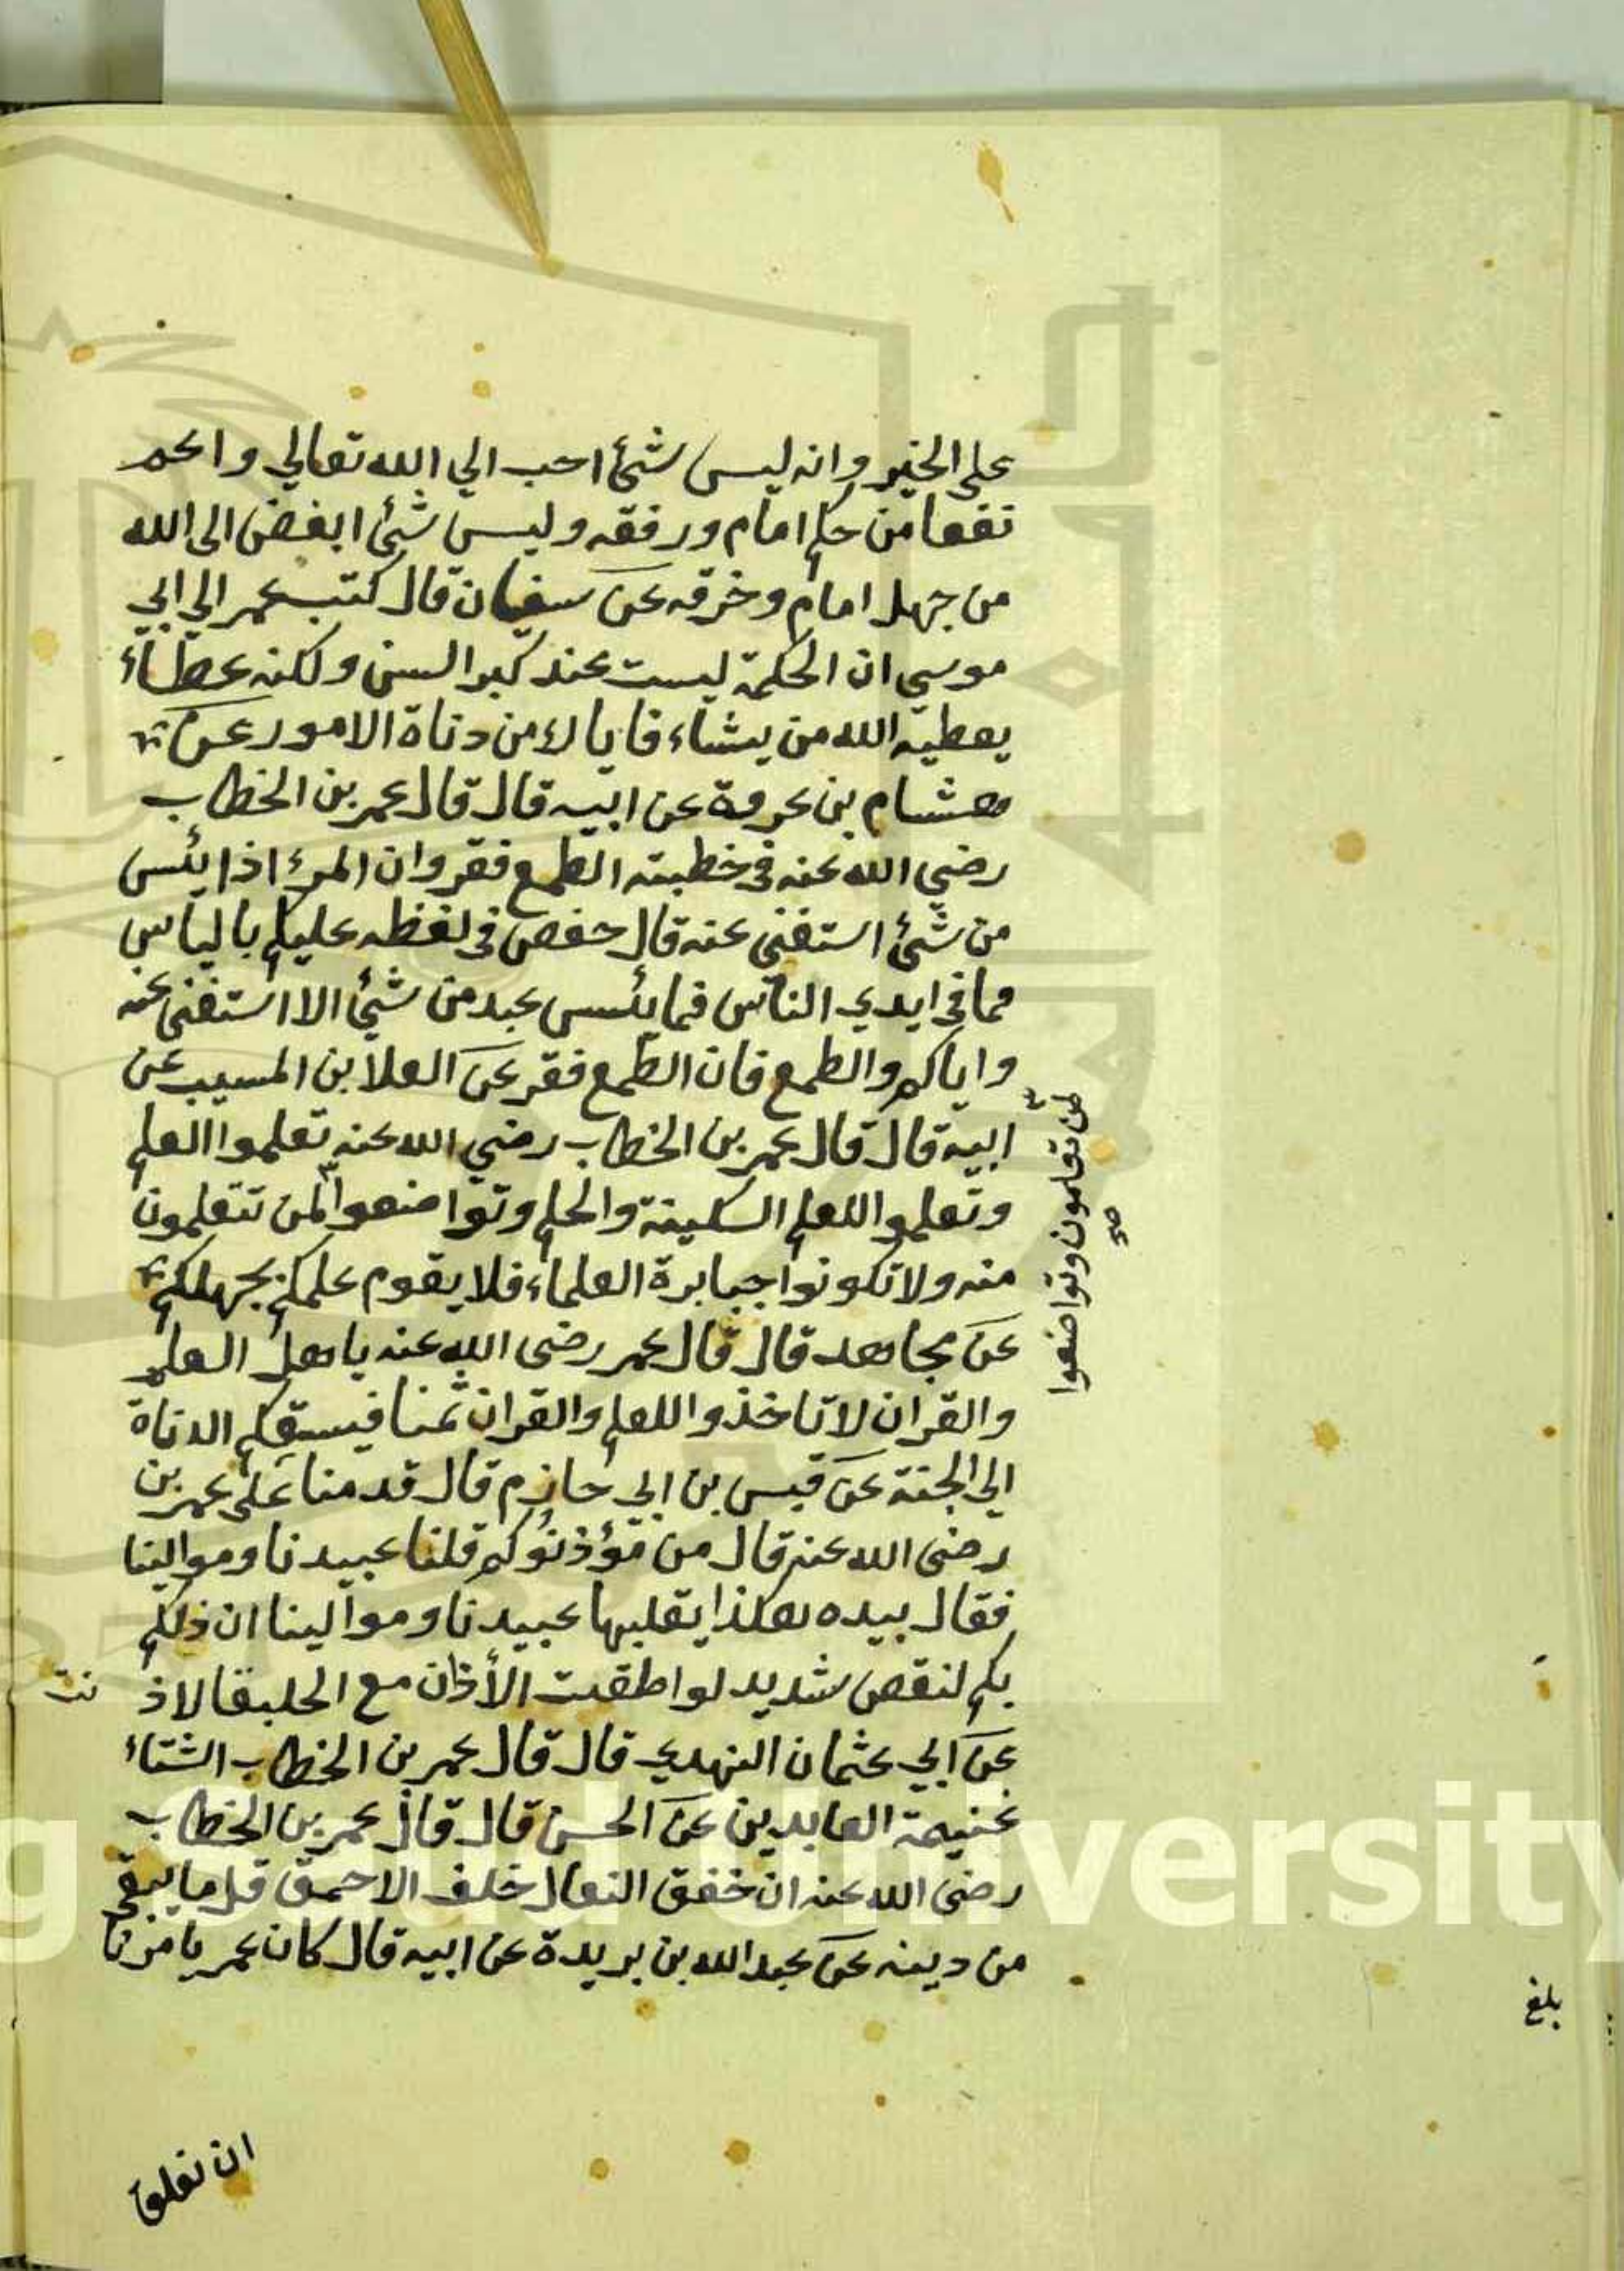 على الخير وانه ليس شئ احب الي الله تعالي واعم
نفعا من حلم امام ورفقه وليس شئ ابغض الى الله
من جهل امام وخرقه عن سفيان قال كتب عمر الي ابي
موسي ان الحكمة ليست عند كبر السن ولكنه عطاء
يعطيه الله من يشاء فاياك من دناة الامور عن
هشام بن عروة عن ابيه قال قال عمر بن الخطاب
رضي الله عنه في خطبته الطمع فقر وان المرء اذا يئس
من شئ استغنى عنه قال حفص في لفظه عليكم بالياس
مما في ايدي الناس فما يئس عبد من شئ الا استغنى عنه
واياكم والطمع فان الطمع فقر عن العلا بن المسيب عن
ابيه قال قال عمر بن الخطاب رضي الله عنه تعلموا العلم
وتعلموا للعلم السكينة والحلم وتواضعوا لمن تتعلمون
منه ولا تكونوا جبابرة العلماء فلا يقوم علمكم بجهلكم
عن مجاهد قال قال عمر رضى الله عنه ياهل العلم
والقران لا تاخذوا للعلم والقران ثمنا فيسبقكم الدناة
الي الجنة عن قيس بن ابي حازم قال قدمنا على عمر بن
رضى الله عنه قال من مؤذنوكم قلنا عبيدنا وموالينا
فقال بيده هكذا يقلبها عبيدنا وموالينا ان ذلكم
بكم لنقص شديد لو اطقت الأذان مع الخليفا لاذ
نت
عن ابي عثمان النهدي قال قال عمر بن الخطاب الشتاء
غنيمة العابدين عن الحسن قال قال عمر بن الخطاب
رضى الله عنه ان خفق النعال خلف الاحمق قل ما يبقي
من دينه عن عبد الله بن بريدة عن ابيه قال كان عمر يامرنا
لمن تعلمون وتواضعوا
صح
بلغ
King Saud University